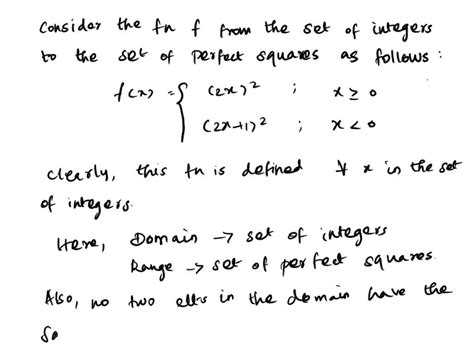 Consider the fn f from the set of integers
to the set of perfect squares as follows :
f(x) = { (2x)² ; x ≥ 0
(2x+1)² ; x < 0
Clearly, this fn is defined ∀ x in the set
of integers.
Here, Domain → set of integers
Range → set of perfect squares.
Also, no two elts in the domain have the